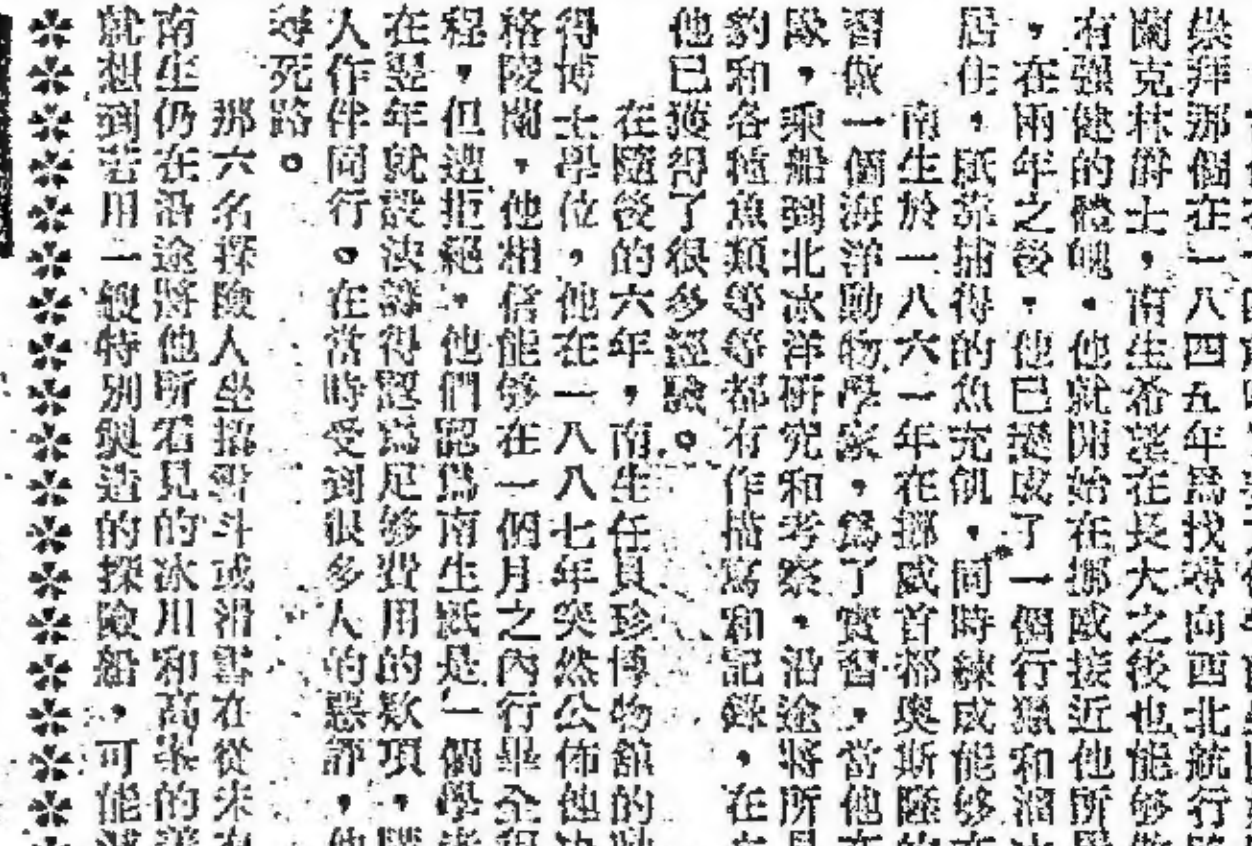 崇拜那個在一八四五年爲找尋向西北航行
蘭克林爵士，南生希望在長大之後也能够
有强健的體魄，他就開始在挪威接近他所
，在兩年之後，他已變成了一個行獵和溜
居住，祇靠捕得的魚充飢，同時練成能够
南生於一八六一年在挪威首都奧斯陸
習做一個海洋動物學家，爲了實習，當他
隊，乘船到北冰洋研究和考察，沿途將所
豹和各種魚類等等都有作描寫和記錄，在
他已獲得了很多經驗。
在隨後的六年，南生任貝珍博物館的
得博士學位，他在一八八七年突然公佈他
格陵蘭，他相信能够在一個月之內行畢全
程，但遭拒絕，他們認爲南生祇是一個學
在翌年就設決籌得認爲足够費用的欵項，
人作伴同行。在當時受到很多人的惡評，
尋死路。
那六名探險人坐搭雪斗或滑雪在從未
南生仍在沿途將他所看見的冰川和高峯的
就想到去用一艘特別製造的探險船，可能